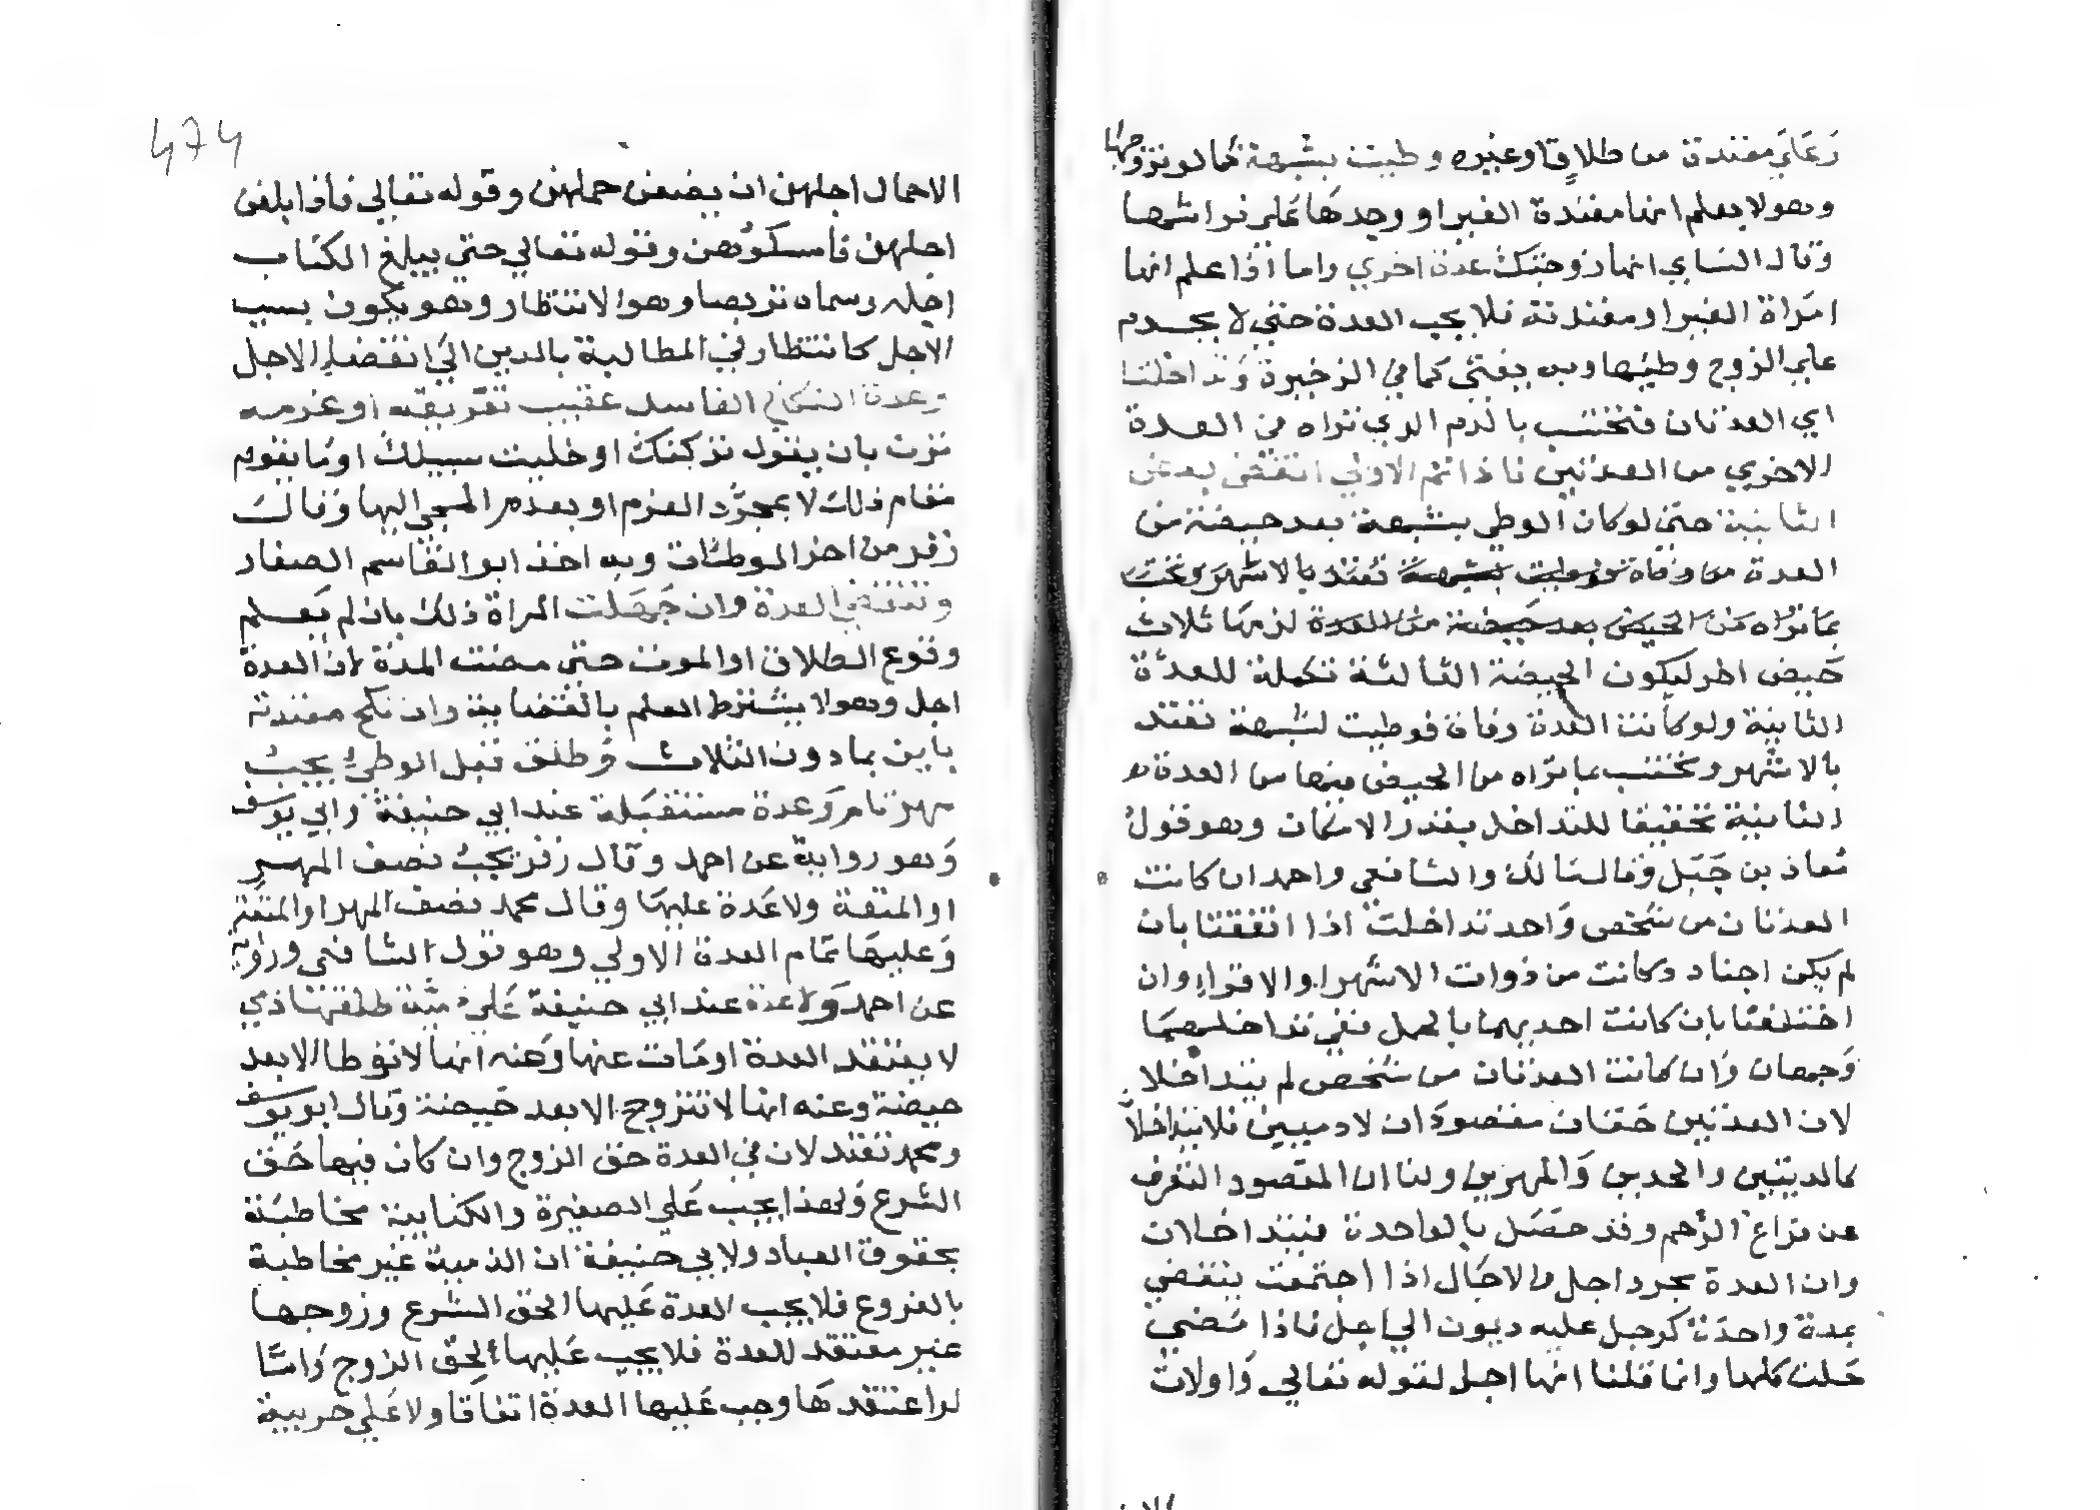 وعلى معتدة من طلاق وغيره وطيت بشبهة كما لو تزوجها
وهو لا يعلم انها معتدة الغير او وجدها على فراشها
وقال النساي انها زوجتك عدة اخري واما اذا علم انها
امراة الغير او معتدته فلا يجب العدة حتي لا يحرم
علي الزوج وطيها وبه يفتي كما في الزخيرة وتداخلتا
اي العدتان فتحتسب بالدم الذي تراه في العدة
الاخري من العدتين فاذا تم الاولي انقضي بعض
الثانية حتي لو كان الوطي بشبهة بعد حيضة من
العدة من وفاة فوطيت بشبهة تعتد بالاشهر وتحتسب
بما تراه من الحيض بعد حيضة من العدة لزمها ثلاث
حيض اخر ليكون الحيضة الثالثة تكملة للعدة
الثانية ولو كانت العدة وفاة فوطيت لشبهة تعتد
بالاشهر وتحتسب بما تراه من الحيض فيها من العدة
الثانية تحقيقا للتداخل بقدر الامكان وهو قول
معاذ بن جبل وقال مالك والشافعي واحمد ان كانت
العدتان من شخص واحد تداخلت اذا اتفقتا بان
لم يكن اجناد وكانت من ذوات الاشهر او الاقراء وان
اختلفتا بان كانت احديهما بالحمل ففي تداخلهما
وجهان وان كانت العدتان من شخص لم يتداخلا
لان العدتين حقان مقصودان لادميين فلا يتداخلا
كالديتين والحدين والمهرين ولنا ان المقصود التعرف
عن فراغ الرحم وقد حصل بالواحدة فيتداخلان
وان العدة مجرد اجل والاجال اذا اجتمعت ينقضي
بمدة واحدة كرجل عليه ديون الي اجل فاذا مضي
حلت كلها وانما قلنا انها اجل لقوله تعالي واولات
474
الاحمال اجلهن ان يضعن حملهن وقوله تعالي فاذا بلغن
اجلهن فامسكوهن وقوله تعالي حتي يبلغ الكتاب
اجله وسماه تربصا وهو الانتظار وهو يكون بسبب
الاجل كانتظار في المطالبة بالدين الي انقضاء الاجل
وعدة النكاح الفاسد عقيب تفريقه او عزمه
ترك بان يقول تركتك او خليت سبيلك او ما يقوم
مقام ذلك لا بمجرد العزم او بعدم المجي اليها وقال
زفر من اخر الوطئات وبه اخذ ابو القاسم الصفار
وتنقضي العدة وان جهلت المراة ذلك بان لم يعلم
وقوع الطلاق او الموت حتي مضت المدة لان العدة
اجل وهو لا يشترط العلم بانقضايه وان نكح معتدته
باين بما دون الثلاث وطلق قبل الوطي يجب
مهر تام وعدة مستقبلة عند ابي حنيفة وابي يوسف
وهو رواية عن احمد وقال زفر يجب نصف المهر
او المتعة ولا عدة عليها وقال محمد نصف المهر او المتعة
وعليها تمام العدة الاولي وهو قول الشافعي ورواية
عن احمد ولا عدة عند ابي حنيفة علي ذمية طلقها ذمي
لا يعتقد العدة او مات عنها وعنه انها لا توطا الا بعد
حيضة وعنه انها لا تتزوج الا بعد حيضة وقال ابو يوسف
ومحمد تعتد لان في العدة حق الزوج وان كان فيها حق
الشرع ولهذا يجب علي الصغيرة والكتابية مخاطبة
بحقوق العباد ولابي حنيفة ان الذمية غير مخاطبة
بالفروع فلا يجب العدة عليها لحق الشرع وزوجها
غير معتقد للعدة فلا يجب عليها لحق الزوج واما
لو اعتقدها وجب عليها العدة اتفاقا ولا علي حربية